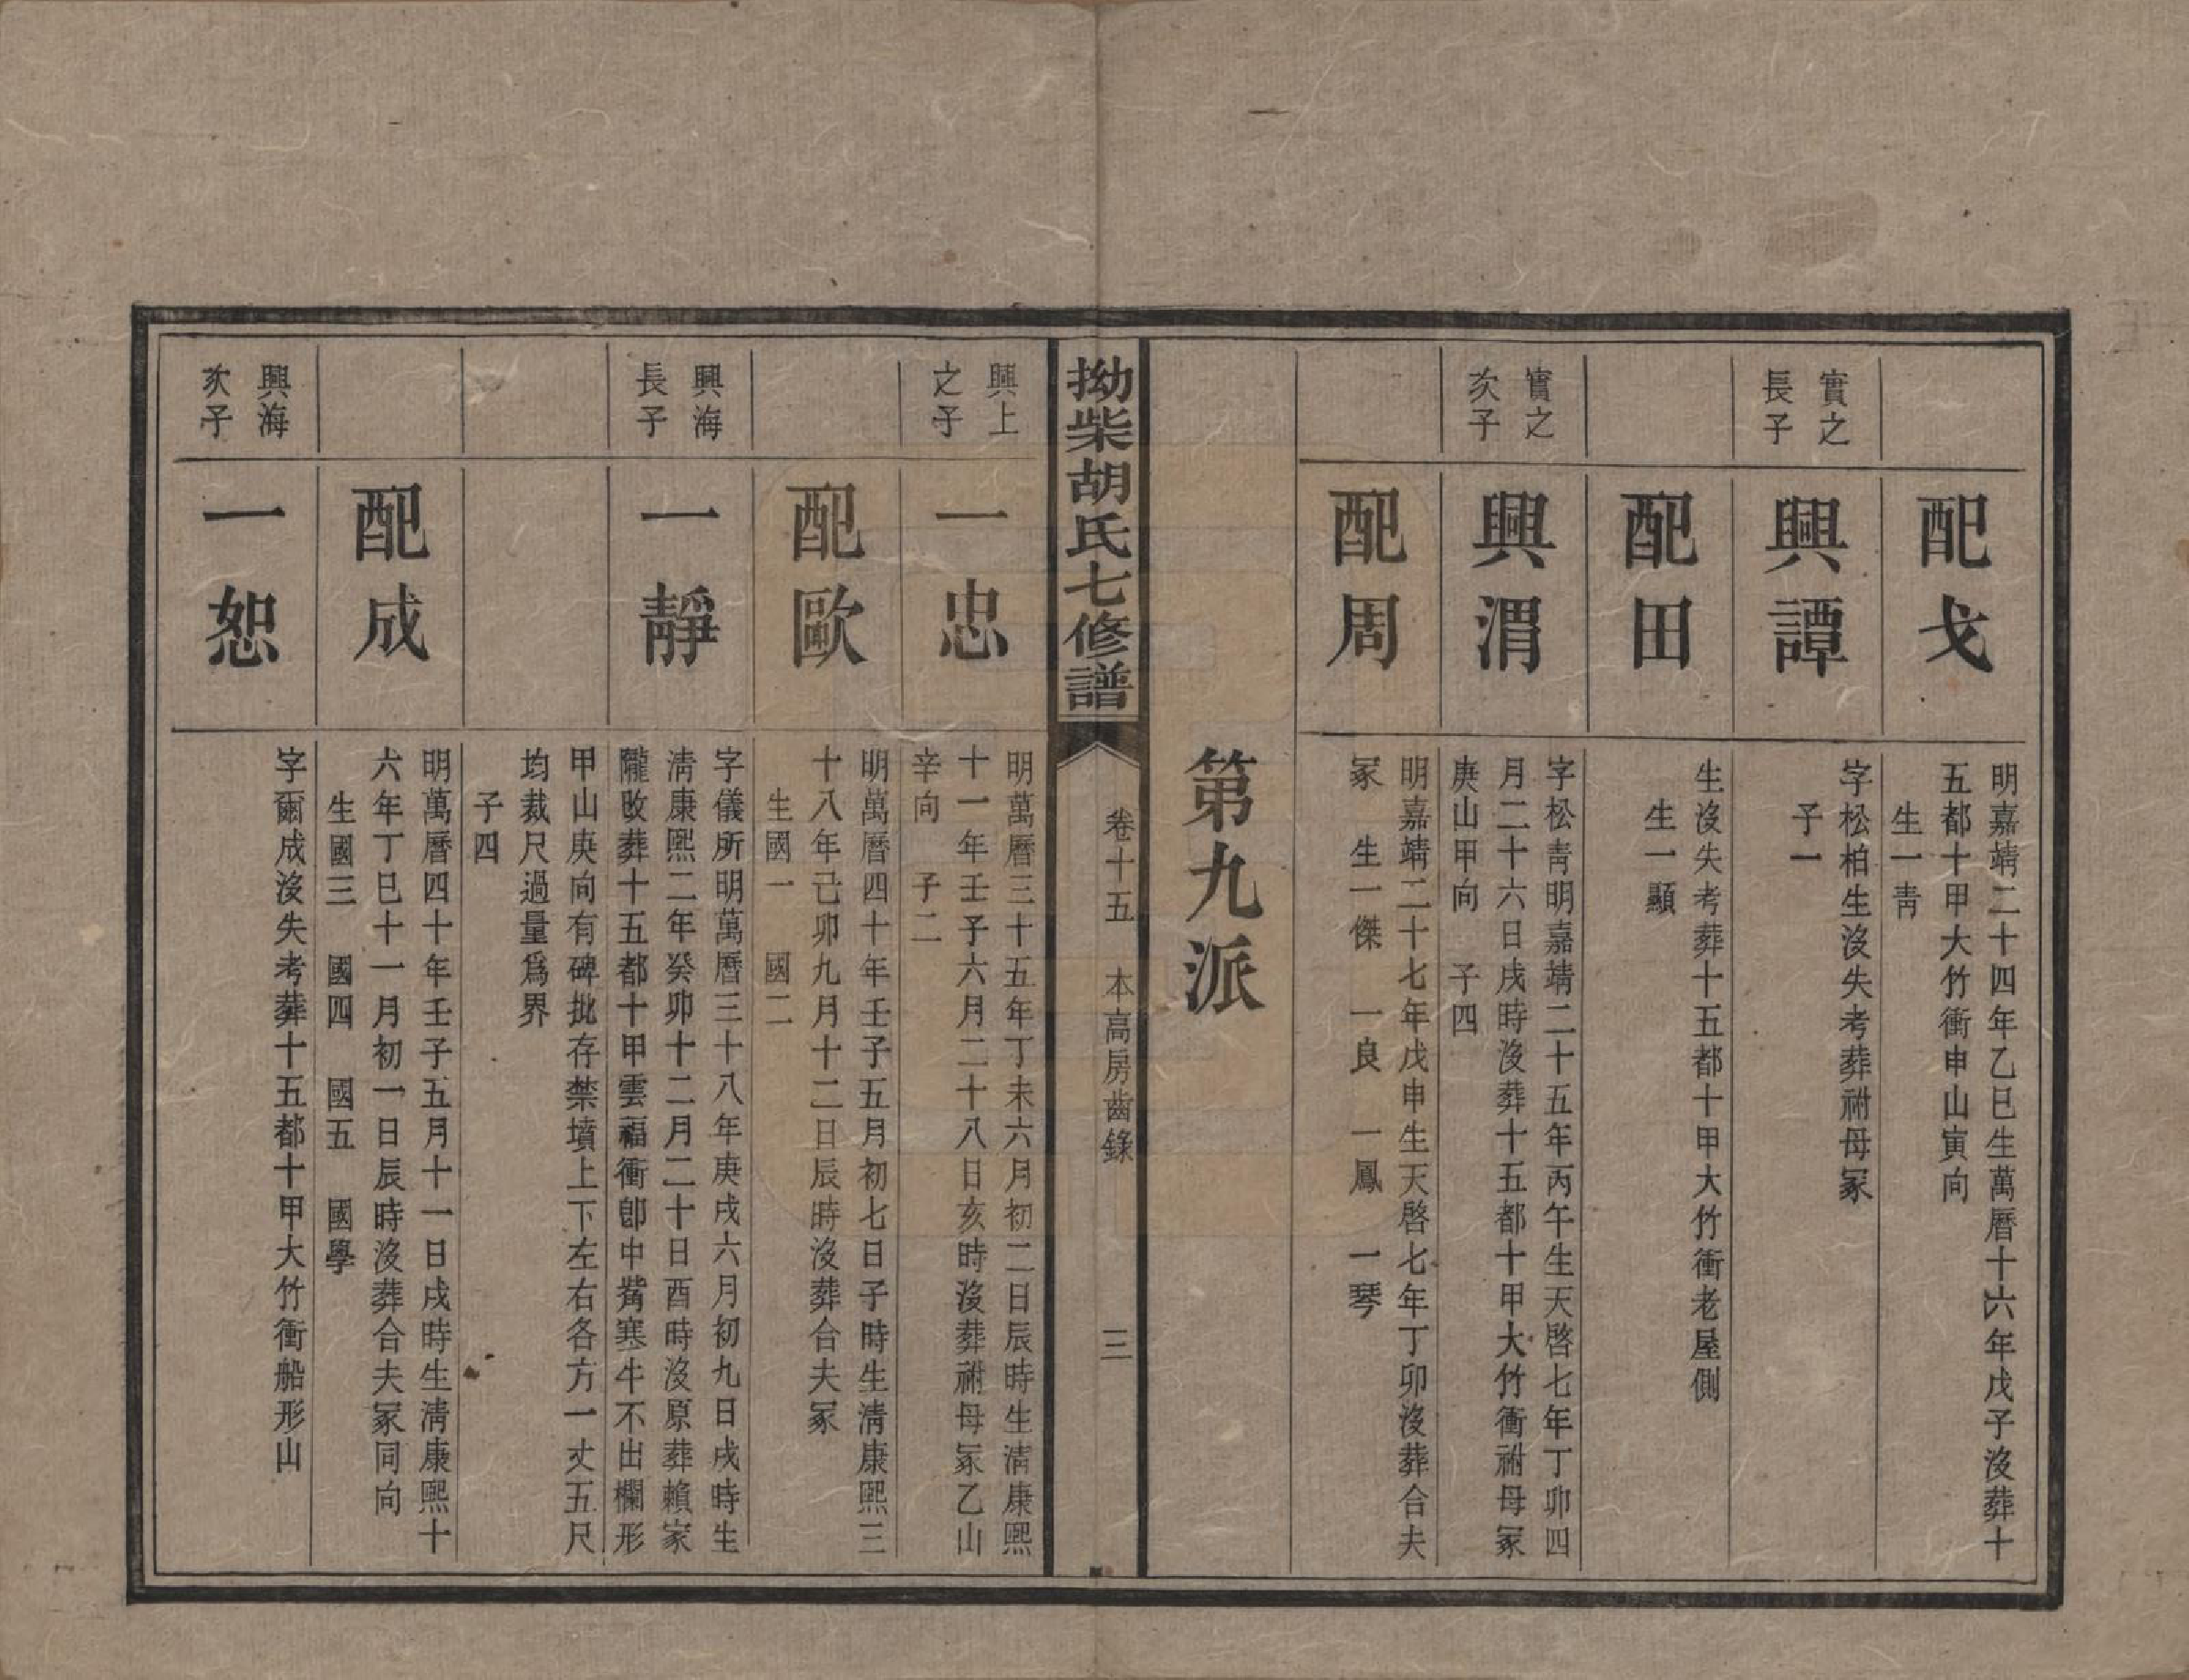 配戈
明嘉靖二十四年乙巳生萬曆十六年戊子沒葬十
五都十甲大竹衝申山寅向
生一靑
實之
長子
興譚
字松柏生沒失考葬祔母冢
子一
配田
生沒失考葬十五都十甲大竹衝老屋側
生一顯
實之
次子
興渭
字松靑明嘉靖二十五年丙午生天啓七年丁卯四
月二十六日戌時沒葬十五都十甲大竹衝祔母冢
庚山甲向 子四
配周
明嘉靖二十七年戊申生天啓七年丁卯沒葬合夫
冢 生一傑 一良 一鳳 一琴
第九派
拗柴胡氏七修譜
卷十五 本高房齒錄 三
興上
之子
一忠
明萬曆三十五年丁未六月初二日辰時生淸康熙
十一年壬子六月二十八日亥時沒葬祔母冢乙山
辛向 子二
配歐
明萬曆四十年壬子五月初七日子時生淸康熙三
十八年己卯九月十二日辰時沒葬合夫冢
生國一 國二
興海
長子
一靜
字儀所明萬曆三十八年庚戌六月初九日戌時生
淸康熙二年癸卯十二月二十日酉時沒原葬賴家
隴改葬十五都十甲雲福衝卽中嘴寒牛不出欄形
甲山庚向有碑批存禁墳上下左右各方一丈五尺
均裁尺過量爲界
子四
配成
明萬曆四十年壬子五月十一日戌時生淸康熙十
六年丁巳十一月初一日辰時沒葬合夫冢同向
生國三 國四 國五 國學
興海
次子
一恕
字爾成沒失考葬十五都十甲大竹衝船形山